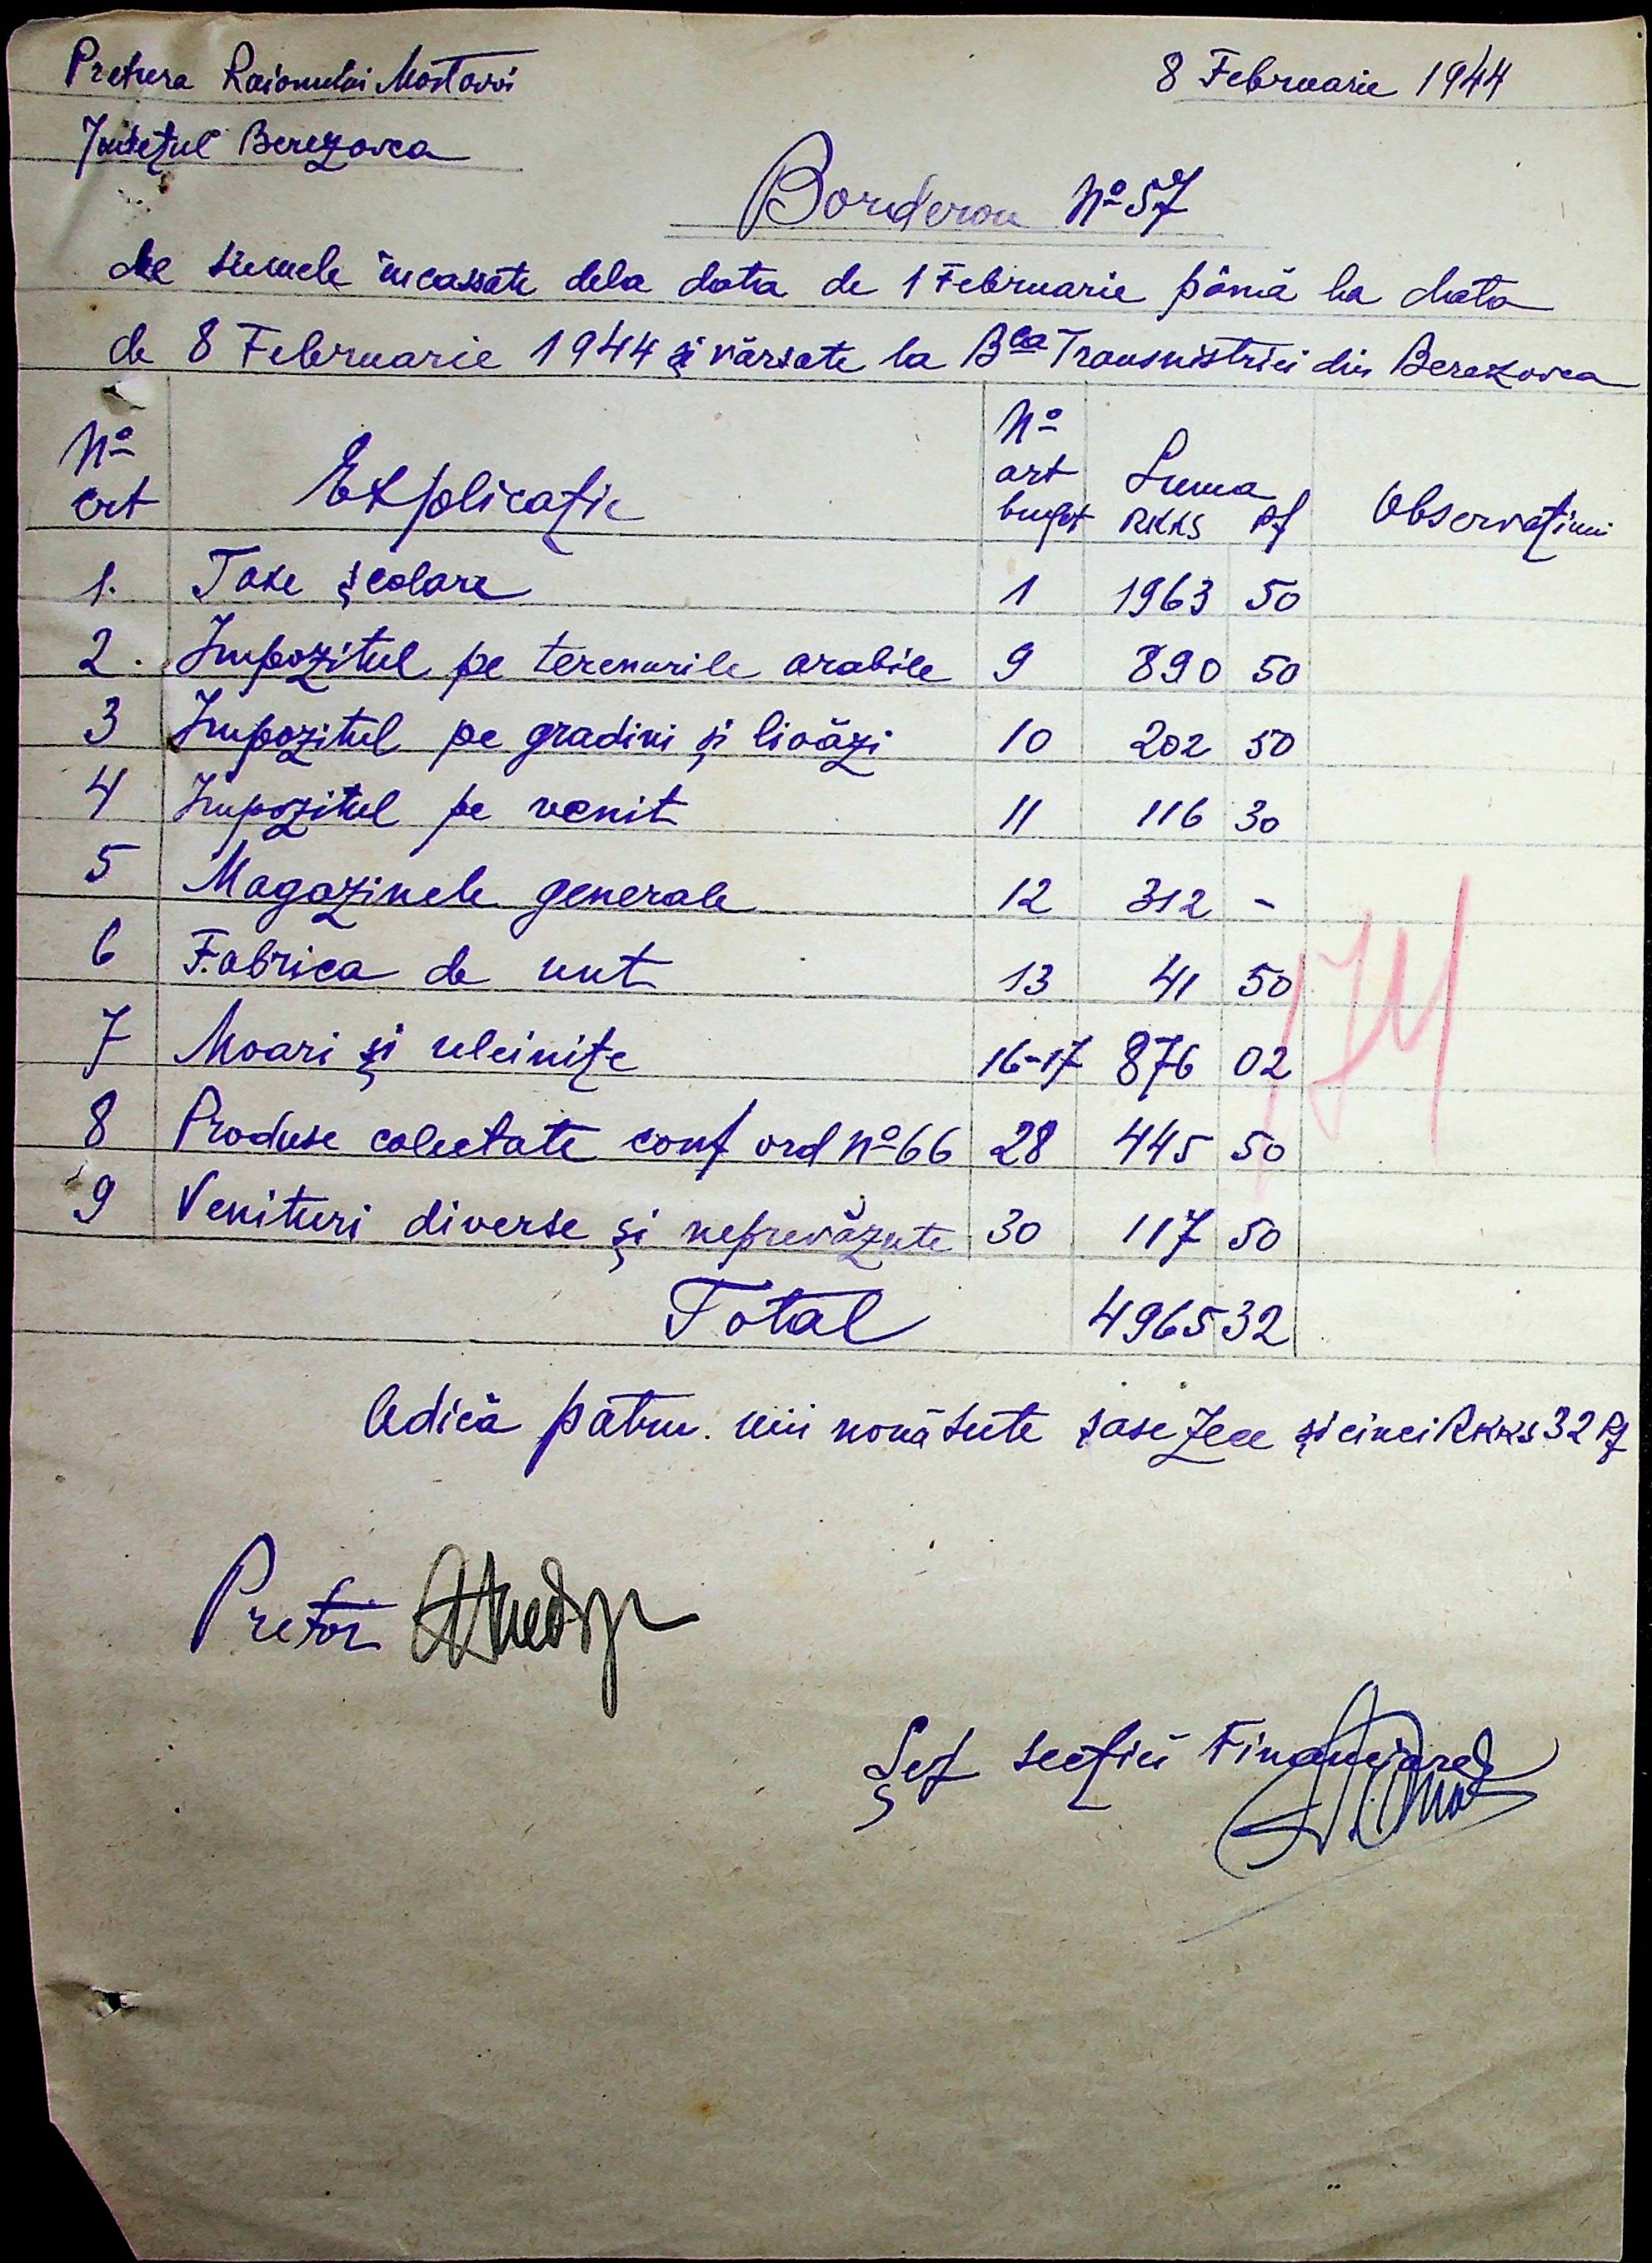 Pretura Raionului Mostovoi
8 Februarie 1944
Județul Berezovca
Borderou No 57
de sumele încassate dela data de 1 Februarie până la data
de 8 Februarie 1944 și vărsate la Bca Transnistriei din Berezovca
No crt Explicație No art buget Suma RKKS Pf Observațiuni
1. Taxe școlare 1 1963 50
2. Impozitul pe terenurile arabile 9 890 50
3 Impozitul pe gradini și livăzi 10 202 50
4 Impozitul pe venit 11 116 30
5 Magazinele generale 12 312 -
6 Fabrica de unt 13 41 50
7 Moari și uleinițe 16-17 876 02
8 Produse colectate conf ord No 66 28 445 50
9 Venituri diverse și neprevăzute 30 117 50
Total 4965 32
Adică patru mii nouă sute șase zece și cinci RKKS 32 Pf
174
Pretor
Șef secției Financiare